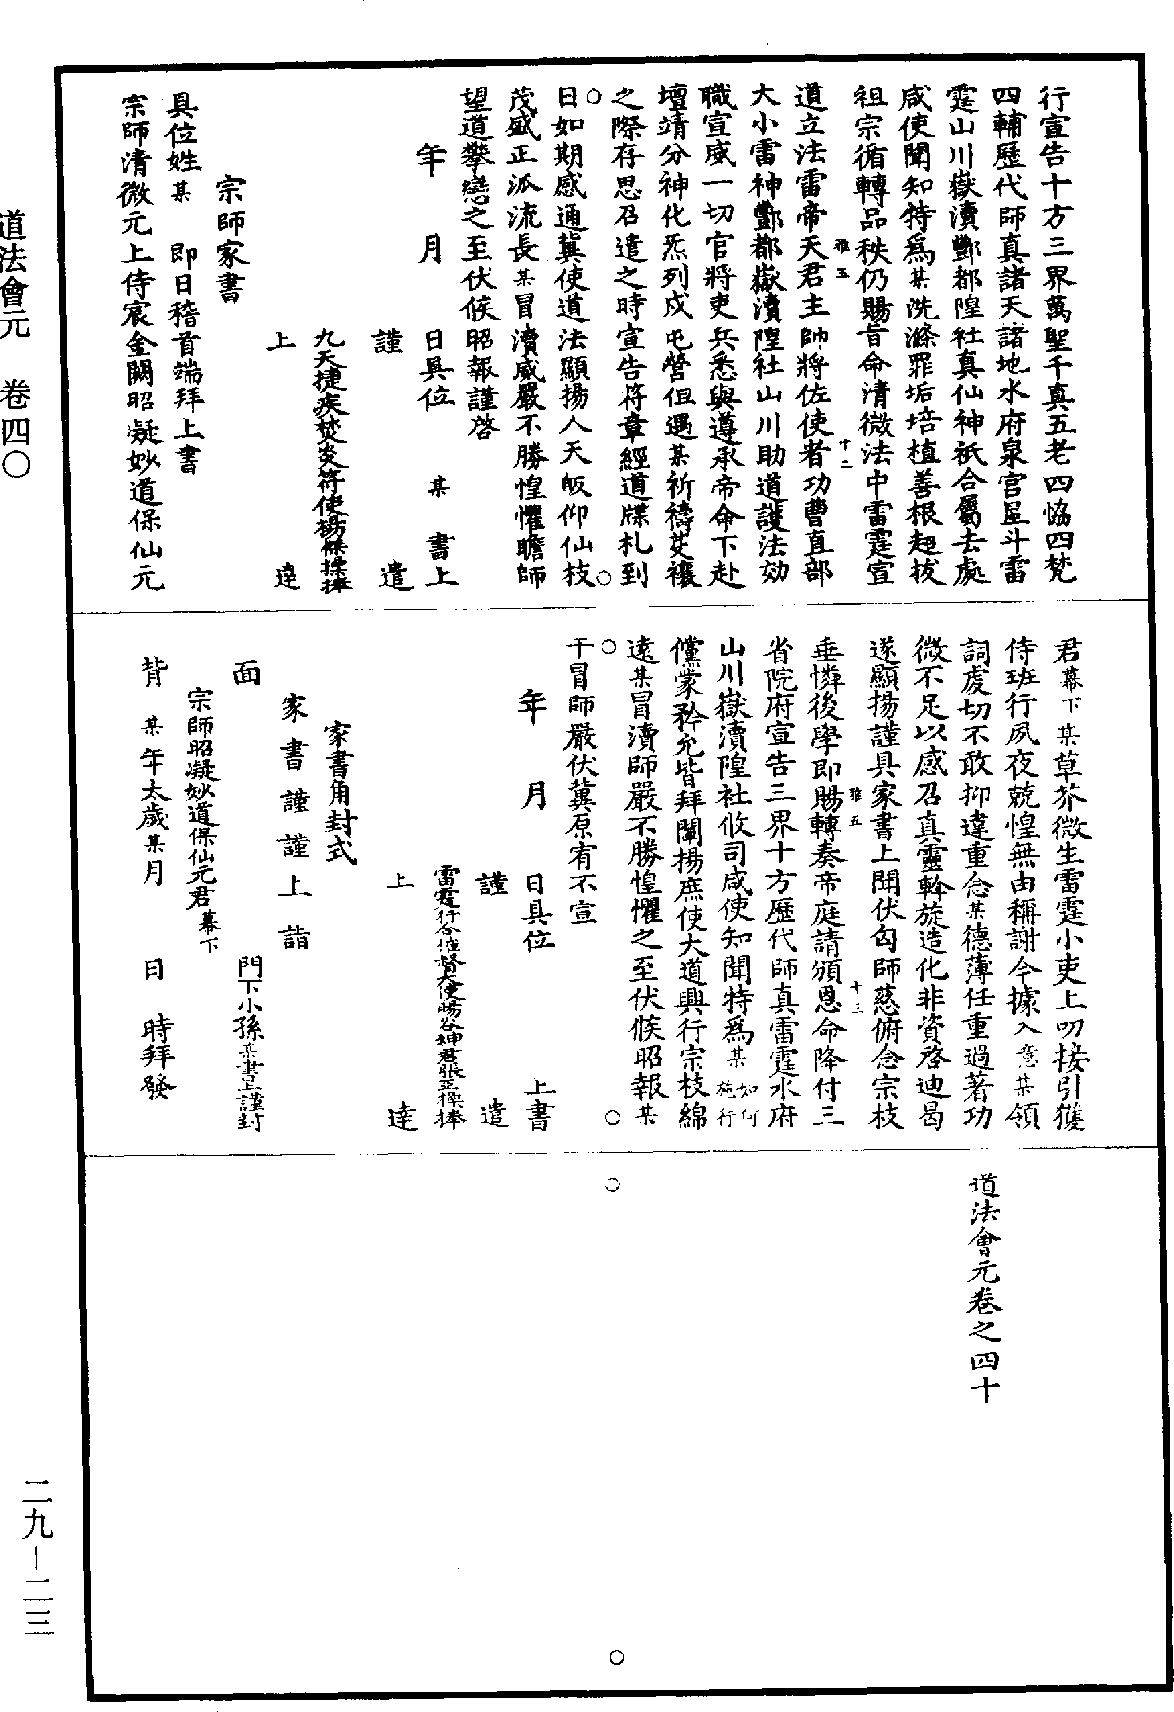 行宣告十方三界萬聖千真五老四恊四梵
四輔歷代師真諸天諸地水府泉宫星斗雷
霆山川嶽瀆酆都隍社真仙神祇合屬去處
咸使聞知特爲某洗滌罪垢培植善根超拔
祖宗循轉品秩仍賜旨命清微法中雷霆宣
雅五
十二
道立法雷帝天君主帥將佐使者功曹直部
大小雷神酆都嶽瀆隍社山川助道護法効
職宣威一切官將吏兵悉與遵承帝命下赴
壇靖分神化炁列戍屯營但遇某祈禱芟禳
之際存思召遣之時宣告符章經道牒札到
日如期感通冀使道法顯揚人天皈仰仙枝
茂盛正派流長某冒瀆威嚴不勝惶懼瞻師
望道攀戀之至伏候昭報謹啓
年 月 日具位 某 書上
謹 遣
九天捷疾焚炎符使楊傑操捧
上 達
宗師家書
具位姓某 即日稽首端拜上書
宗師清微元上侍宸金闕昭凝妙道保仙元
君幕下某草芥微生雷霆小吏上叨接引獲
侍班行夙夜兢惶無由稱謝今據入意某領
詞虔切不敢抑違重念某德薄任重過著功
微不足以感召真靈斡旋造化非資啓迪曷
遂顯揚謹具家書上聞伏匃師慈俯念宗枝
雅五
十三
垂憐後學即賜轉奏帝庭請頒恩命降付三
省院府宣告三界十方歷代師真雷霆水府
山川嶽瀆隍社攸司咸使知聞特爲某如何施行
儻蒙矜允皆拜闡揚庶使大道興行宗枝綿
遠某冒瀆師嚴不勝惶懼之至伏候昭報某
干冒師嚴伏冀原宥不宣
年 月 日具位 上書
謹 遣
雷霆行令催督大使暘谷坤君張亞操捧
上 達
家書角封式
家書謹謹上詣
面
宗師昭凝妙道保仙元君幕下 門下小孫某書上謹封
背 某年太歲某月 日 時拜發
道法會元卷之四十
道法會元 卷四〇
二九-二三